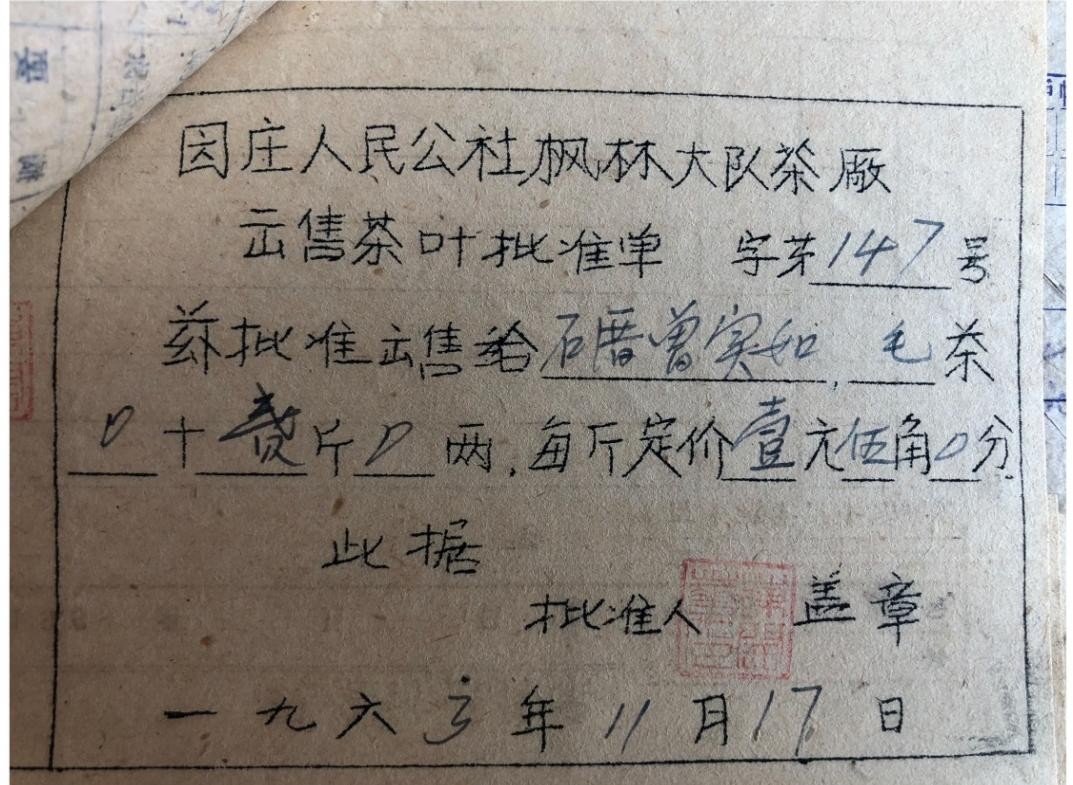 因庄人民公社枫林大队茶厰
出售茶叶批准单 字苐147号
兹批准出售给石厝曾实如,毛茶
0十贰斤0两,每斤定价壹元伍角0分.
此据
批准人 盖章
一九六三年11月17日